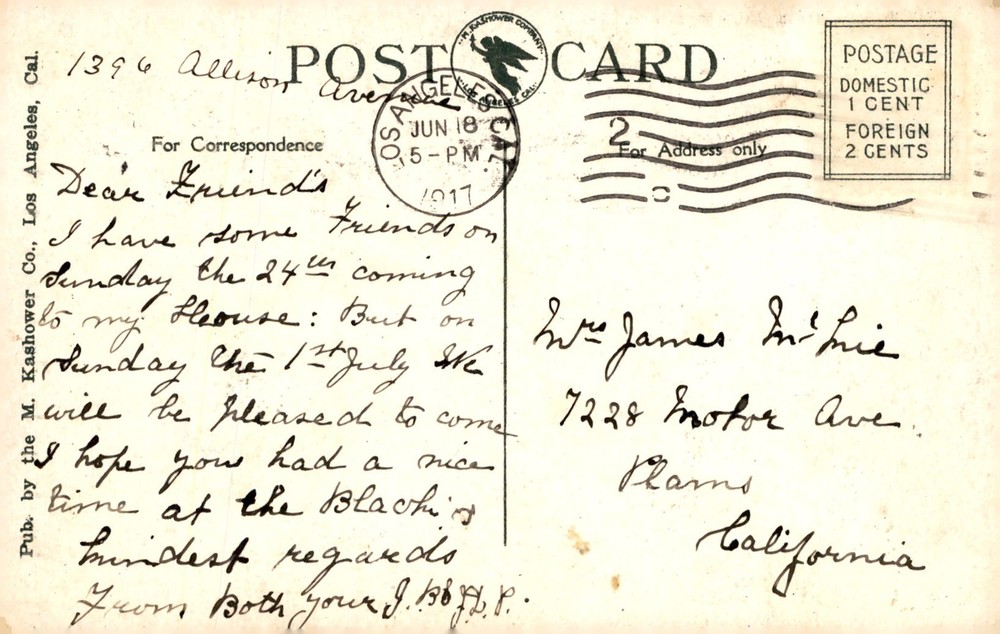 Pub. by the M. Kashower Co., Los Angeles, Cal.
POST CARD
M. KASHOWER COMPANY
LOS ANGELES CAL.
1396 Allison Avenue
LOS ANGELES CAL.
JUN 18
5-PM
1917
2
POSTAGE
DOMESTIC
1 CENT
FOREIGN
2 CENTS
For Correspondence
For Address only
Dear Friend's
I have some Friends on
Sunday the 24th coming
to my House: But on
Sunday the 1st July We
will be pleased to come
I hope you had a nice
time at the
kindest regards
From Both your J. B
Mrs James
7228 Motor Ave.
Plams
California